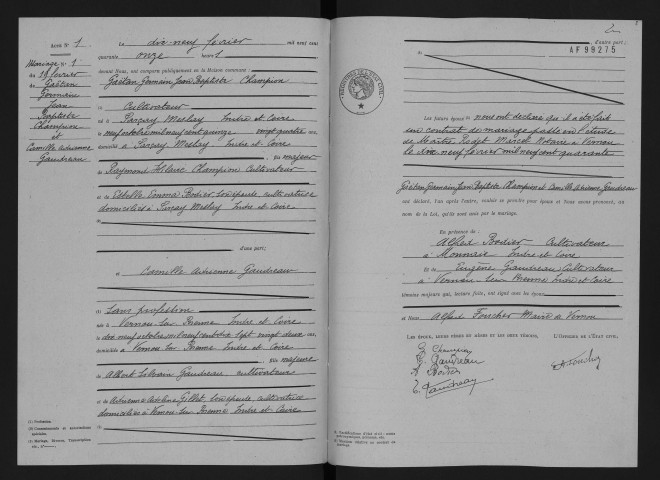 Acte N° 1
Mariage n° 1
du 19 février
de
Gaëtan
Germain
Jean
Baptiste
Champion
et
Camille Adrienne
Gaudreau
Le dix-neuf février mil neuf cent
quarante onze heures
devant Nous, ont comparu publiquement en la Maison commune
Gaëtan Germain Jean Baptiste Champion
(1) Cultivateur
né à Parçay Meslay Indre et Loire
le neuf octobre mil neuf cent quinze vingt quatre ans,
domicilié à Parçay Meslay Indre et Loire
fils majeur
de Raymond Hilaire Champion Cultivateur
et de Estelle Emma Bodier son épouse cultivatrice
domiciliés à Parçay Meslay Indre et Loire
d'une part;
et Camille Adrienne Gaudreau
(1) Sans profession
née à Vernou sur Brenne Indre et Loire
le dix neuf octobre mil neuf cent vingt deux ans,
domiciliée à Vernou sur Brenne Indre et Loire
fille majeure
de Albert Gaudreau cultivateur
et de Adrienne Gillet son épouse cultivatrice
domiciliés à Vernou sur Brenne Indre et Loire
(1) Profession.
2
d'autre part;
AF 99275
Les futurs époux nous ont déclaré qu'il a été fait
un contrat de mariage passé en l'étude
de Maître Marcel Notaire à Vernou
le dix neuf février mil neuf cent quarante
Gaëtan Germain Jean Baptiste Champion et Camille Adrienne Gaudreau
ont déclaré, l'un après l'autre, vouloir se prendre pour époux et Nous avons prononcé, au
nom de la Loi, qu'ils sont unis par le mariage.
En présence de
Alfred Bodier Cultivateur
à Monnaie Indre et Loire
Et de Eugène Gaudreau Cultivateur
à Vernou sur Brenne Indre et Loire
témoins majeurs qui, lecture faite, ont signé avec les époux
et Nous Alfred Foucher Maire de Vernou
L'Officier de l'État civil,
G. Champion
C. Gaudreau
A. Bodier
E. Gaudreau
A. Foucher